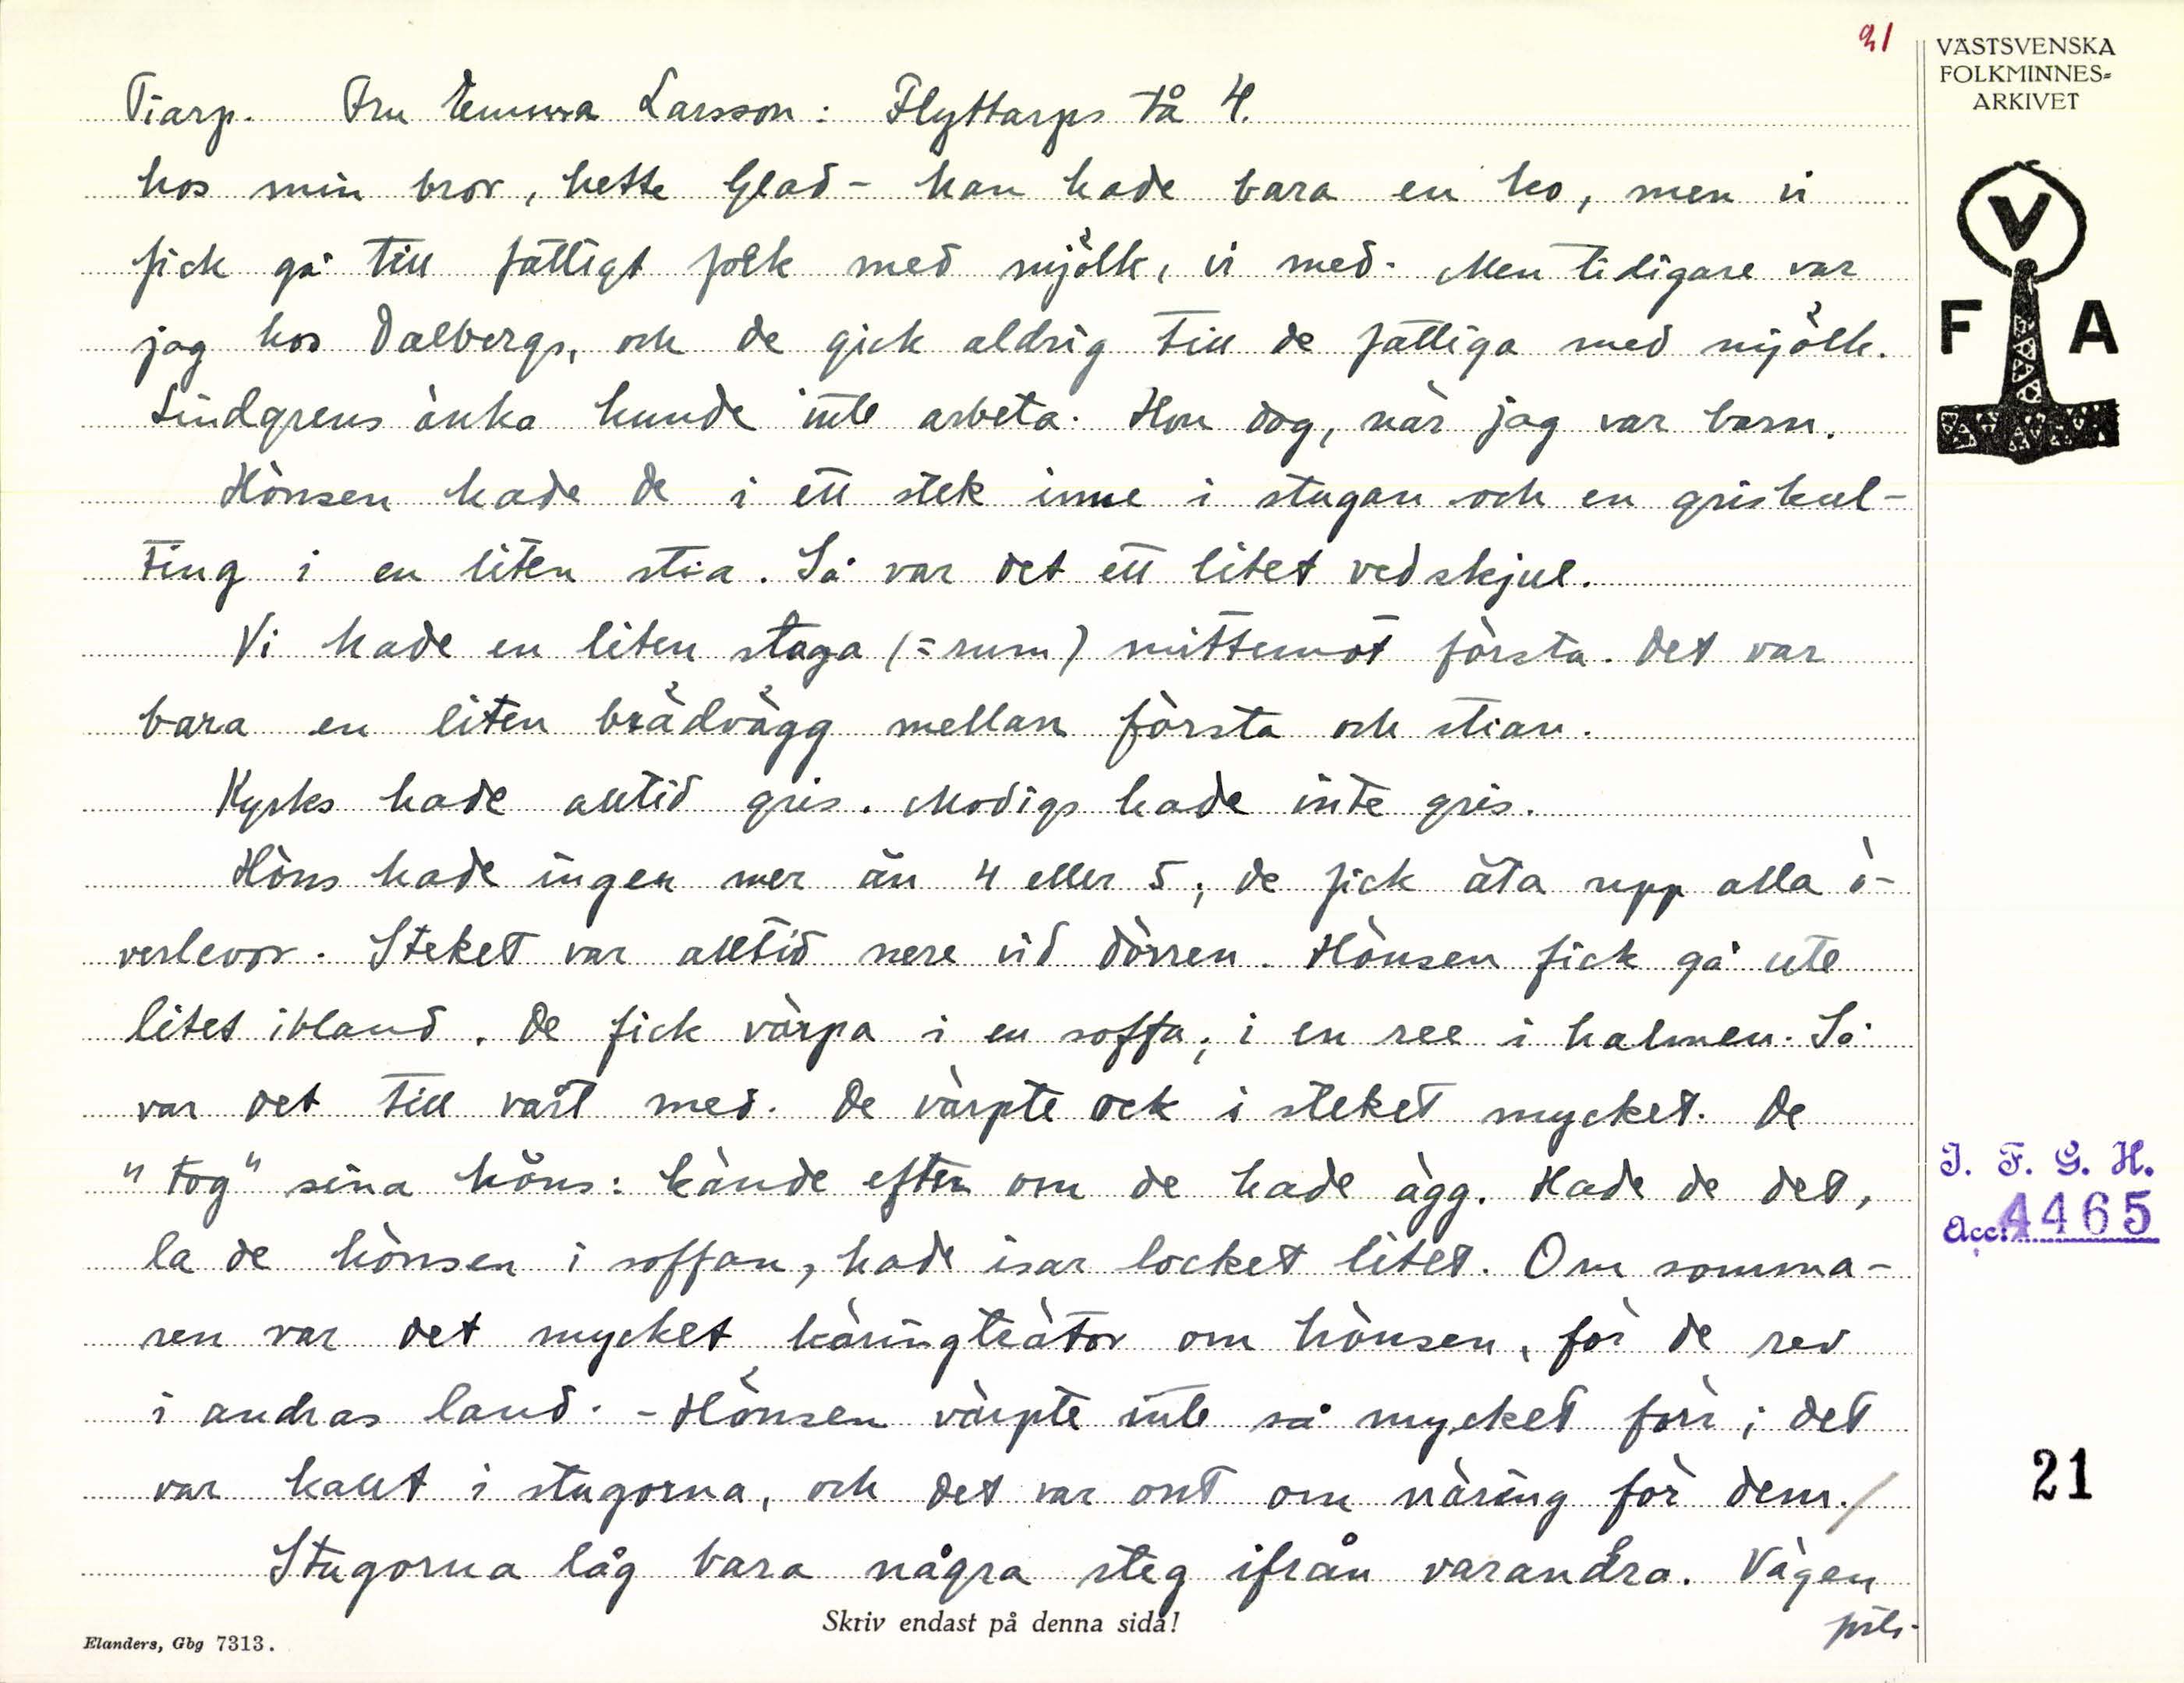 21
VÄSTSVENSKA
FOLKMINNES-
ARKIVET
Tiarp. Fru Emma Larsson: Flyttarps tå 4.
hos min bror, hette Glad - han hade bara en ko, men vi
fick gå till fattigt folk med mjölk, vi med. Men tidigare var
jag hos Dalbergs, och de gick aldrig till de fattiga med mjölk.
Lindgrens änka kunde inte arbeta. Hon dog, när jag var barn.
Hönsen hade de i ett stek inne i stugan och en griskul-
ting i en liten stia. Så var det ett litet vedskjul.
Vi hade en liten stuga (= rum) mittemot första. Det var
bara en liten brädvägg mellan första och stian.
Kyrks hade alltid gris. Modigs hade inte gris.
Höns hade ingen mer än 4 eller 5; de fick äta upp alla ö-
verlevor. Steket var alltid nere vid dörren. Hönsen fick gå ute
litet ibland. De fick värpa i en soffa; i en ree i halmen. Så
var det till vart med. De värpte ock i steket mycket. De
"tog" sina höns: kände efter om de hade ägg. Hade de det,
la de hönsen i soffan, hade isär locket litet. Om somma-
ren var det mycket käringträtor om hönsen, för de rev
i andras land. - Hönsen värpte inte så mycket förr; det
var kallt i stugorna, och det var ont om näring för dem./
Stugorna låg bara några steg ifrån varandra. Vägen
Skriv endast på denna sida!
Elanders, Gbg 7313.
V
F A
I. F. G. H.
Acc. 4465
21